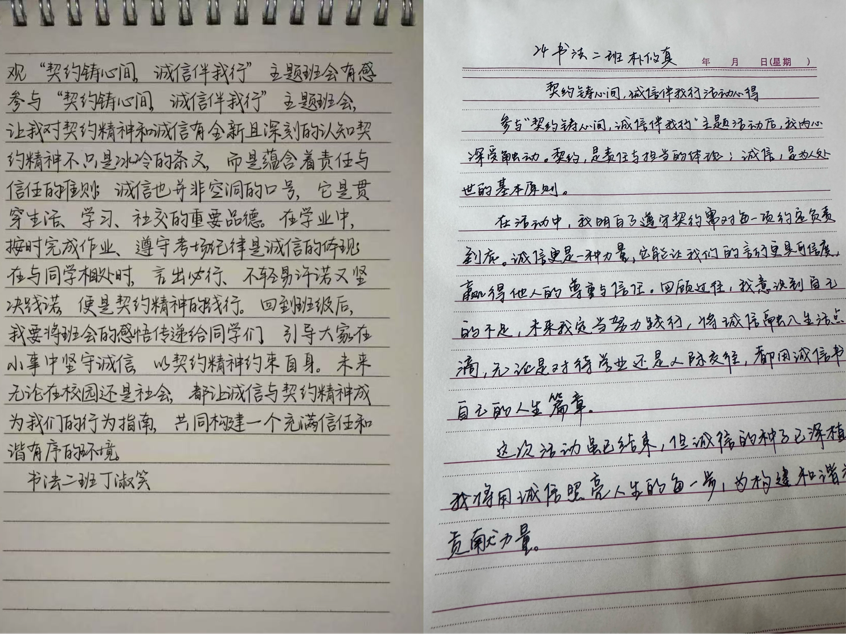 观“契约铸心间，诚信伴我行”主题班会有感
参与“契约铸心间，诚信伴我行”主题班会，
让我对契约精神和诚信有全新且深刻的认知契
约精神不只是冰冷的条文，而是蕴含着责任与
信任的准则；诚信也并非空洞的口号，它是贯
穿生活、学习、社交的重要品德。在学业中，
按时完成作业、遵守考场纪律是诚信的体现；
在与同学相处时，言出必行、不轻易许诺又坚
决践诺，便是契约精神的践行。回到班级后，
我要将班会的感悟传递给同学们，引导大家在
小事中坚守诚信，以契约精神约束自身。未来
无论在校园还是社会，都让诚信与契约精神成
为我们的行为指南，共同构建一个充满信任和
谐有序的环境
书法二班丁淑笑
24书法二班朴俭真 年 月 日(星期 )
契约铸心间，诚信伴我行活动心得
参与“契约铸心间，诚信伴我行”主题活动后，我内心
深受触动。契约，是责任与担当的体现；诚信，是为人处
世的基本原则。
在活动中，我明白了遵守契约需对每一项约定负责
到底。诚信更是一种力量，它能让我们的言行更具可信度，
赢得他人的尊重与信任。回顾过往，我意识到自己
的不足，未来我定当努力践行，将诚信融入生活点
滴，无论是对待学业还是人际交往，都用诚信书
自己的人生篇章。
这次活动虽已结束，但诚信的种子已深植
我将用诚信照亮人生的每一步，为构建和谐
贡献力量。